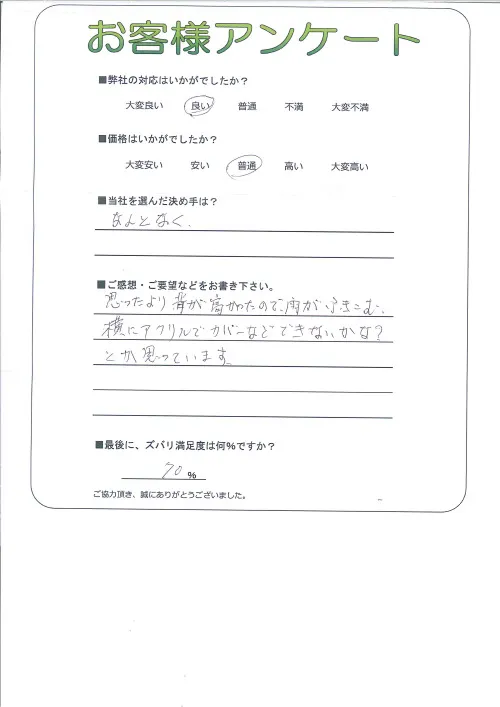 お客様アンケート
■弊社の対応はいかがでしたか？
大変良い 良い 普通 不満 大変不満
■価格はいかがでしたか？
大変安い 安い 普通 高い 大変高い
■当社を選んだ決め手は？
なんとなく.
■ご感想・ご要望などをお書き下さい。
思ったより背が高かったので、雨がふきこむ、
横にアクリルでカバーなどできないかな？
とか思っています
■最後に、ズバリ満足度は何％ですか？
70 %
ご協力頂き、誠にありがとうございました。